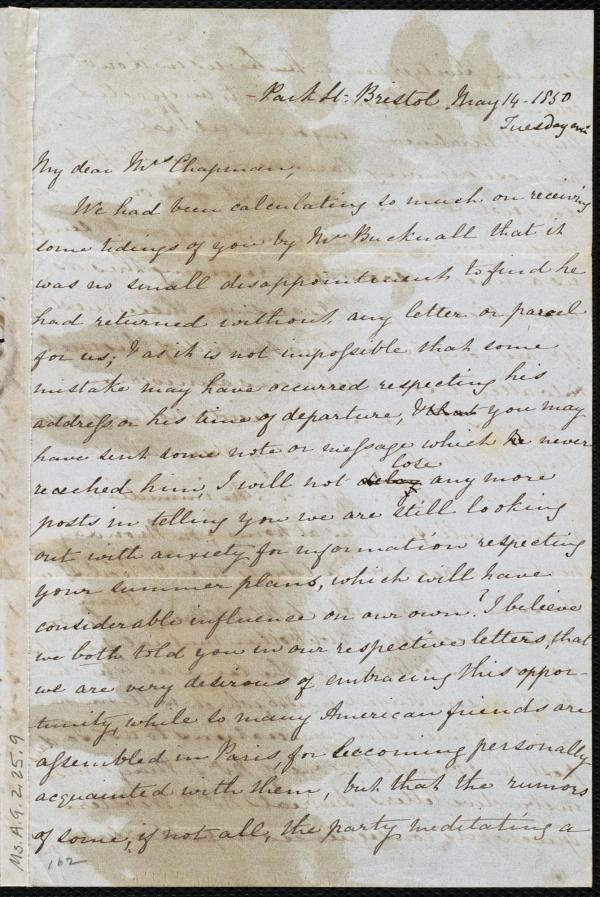 - Park St. Bristol May 14 - 1850
Tuesday evg
My dear Mrs Chapman,
We had been calculating so much on receiving
some tidings of you by Mr Bucknall that it
was no small disappointment to find he
had returned without any letter or parcel
for us; & as it is not impossible that some
mistake may have occurred respecting his
address or his time of departure, & that you may
have sent some note or message which he never
reached him, I will not delay lose any more
posts in telling you we are still looking
out with anxiety for information respecting
your summer plans, which will have
considerable influence on our own. I believe
we both told you in our respective letters, that
we are very desirous of embracing this oppor-
tunity, while so many American friends are
assembled in Paris, for becoming personally
acquainted with them, but that the rumors
of some, if not all, the party meditating a
Ms.A.9.2.25.9
162